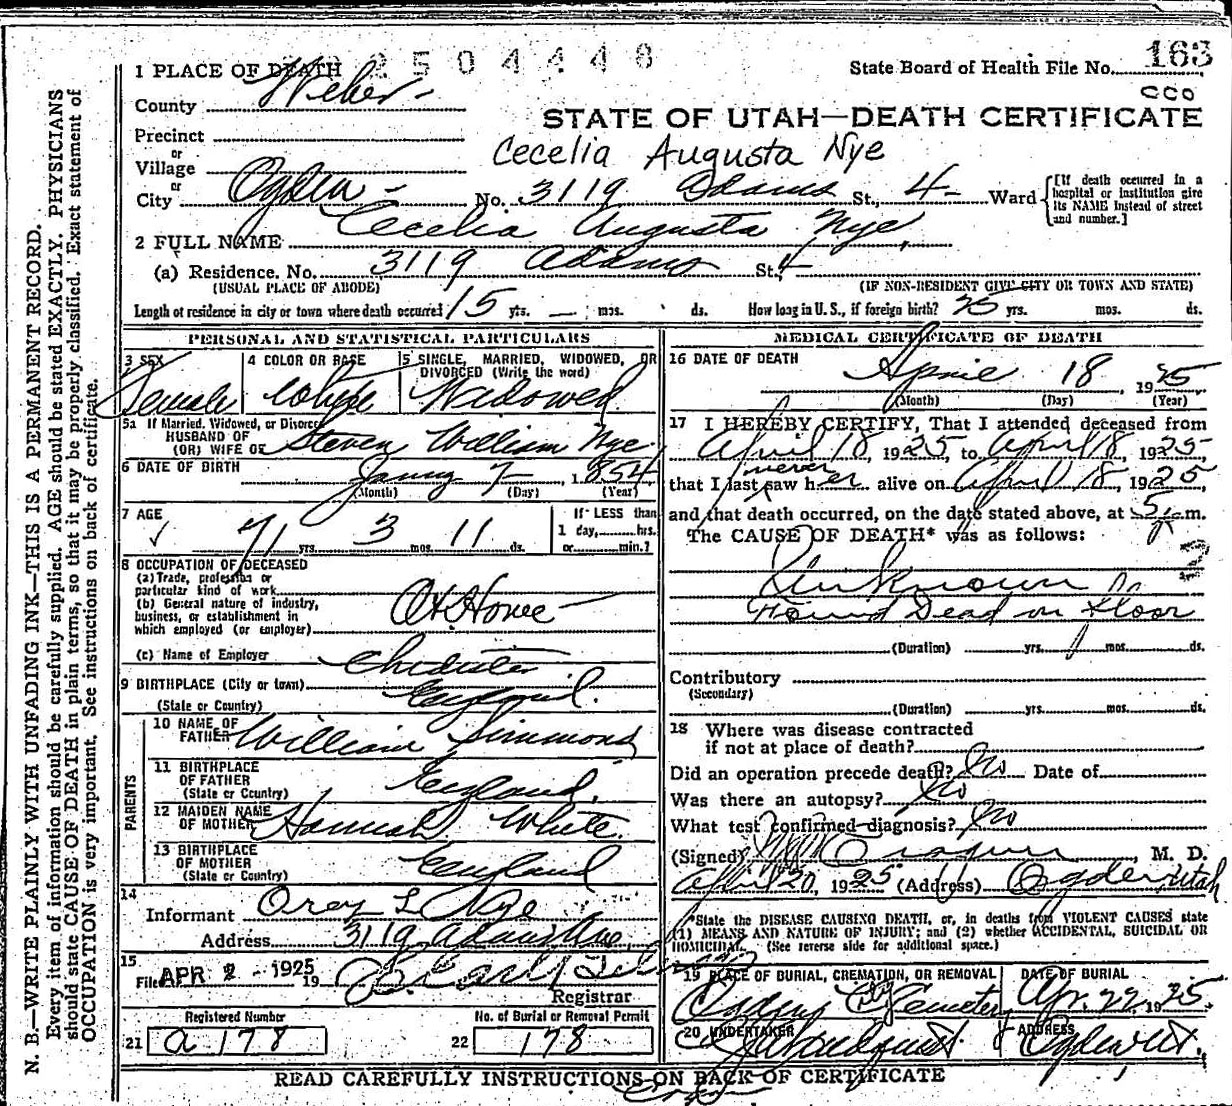 2504448
163
1 PLACE OF DEATH
State Board of Health File No.
CCO
County Weber
STATE OF UTAH—DEATH CERTIFICATE
Precinct
or
Village
Cecelia Augusta Nye
or
City Ogden No. 3119 Adams St., 4 Ward
[If death occurred in a
hospital or institution give
its NAME instead of street
and number.]
2 FULL NAME Cecelia Augusta Nye
(a) Residence. No. 3119 Adams St. 4
(USUAL PLACE OF ABODE)
(IF NON-RESIDENT GIVE CITY OR TOWN AND STATE)
Length of residence in city or town where death occurred 15 yrs. — mos. ds. How long in U.S., if foreign birth? yrs. mos. ds.
N. B.—WRITE PLAINLY WITH UNFADING INK—THIS IS A PERMANENT RECORD.
Every item of information should be carefully supplied. AGE should be stated EXACTLY. PHYSICIANS
should state CAUSE OF DEATH in plain terms, so that it may be properly classified. Exact statement of
OCCUPATION is very important. See instructions on back of certificate.
PERSONAL AND STATISTICAL PARTICULARS
3 SEX
Female
4 COLOR OR RACE
White
5 SINGLE, MARRIED, WIDOWED, OR
DIVORCED (Write the word)
Widowed
5a If Married, Widowed, or Divorced
HUSBAND OF
(OR) WIFE OF Steven William Nye
6 DATE OF BIRTH
7 1854
(Month) (Day) (Year)
7 AGE
71 yrs. 3 mos. 11 ds.
If LESS than
1 day, hrs.
or min.?
8 OCCUPATION OF DECEASED
(a) Trade, profession or
particular kind of work
(b) General nature of industry,
business, or establishment in
which employed (or employer)
At Home
(c) Name of Employer
9 BIRTHPLACE (City or town)
(State or Country) England
PARENTS
10 NAME OF
FATHER William Simmons
11 BIRTHPLACE
OF FATHER
(State or Country) England
12 MAIDEN NAME
OF MOTHER Hannah White
13 BIRTHPLACE
OF MOTHER
(State or Country) England
14
Informant L Nye
Address 3119 Adams Ave
15
Filed APR 2 - 1925 19
Registrar
Registered Number
No. of Burial or Removal Permit
21 a 178
22 178
MEDICAL CERTIFICATE OF DEATH
16 DATE OF DEATH
April 18, 1925
(Month) (Day) (Year)
17 I HEREBY CERTIFY, That I attended deceased from
April 18, 1925, to April 18, 1925,
never
that I last saw her alive on April 18, 1925,
and that death occurred, on the date stated above, at 5 p. m.
The CAUSE OF DEATH* was as follows:
Unknown
Found Dead on Floor
(Duration) yrs. mos. ds.
Contributory
(Secondary)
(Duration) yrs. mos. ds.
18 Where was disease contracted
if not at place of death?
Did an operation precede death? No Date of
Was there an autopsy? No
What test confirmed diagnosis? No
(Signed) , M. D.
April 20, 1925 (Address) Ogden, Utah
*State the DISEASE CAUSING DEATH, or, in deaths from VIOLENT CAUSES state
(1) MEANS AND NATURE OF INJURY; and (2) whether ACCIDENTAL, SUICIDAL OR
HOMICIDAL. (See reverse side for additional space.)
19 PLACE OF BURIAL, CREMATION, OR REMOVAL
Ogden City Cemetery
DATE OF BURIAL
Apr. 22 1925
20 UNDERTAKER
ADDRESS
Ogden Ut.
READ CAREFULLY INSTRUCTIONS ON BACK OF CERTIFICATE